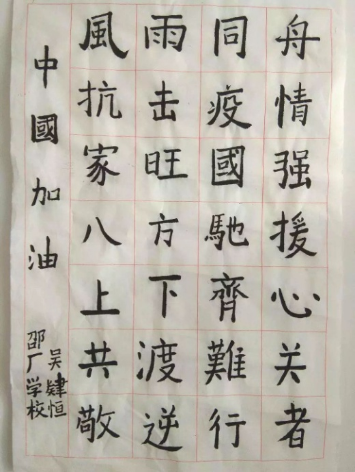 風雨同舟
抗击疫情
家旺國强
八方馳援
上下齊心
共渡難关
敬逆行者
中國加油
邵厂学校
吴肄恒